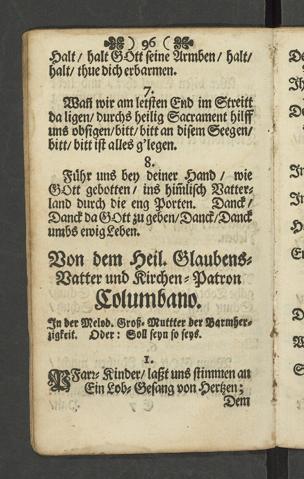 ) 96 (
Halt/ halt GOtt seine Armben/ halt/
halt/ thue dich erbarmen.
7.
Wañ wir am letsten End im Streitt
da ligen/ durchs heilig Sacrament hilff
uns obsigen/ bitt/ bitt an disem Seegen/
bitt/ bitt ist alles g'legen.
8.
Führ uns bey deiner Hand/ wie
GOtt gebotten/ ins him̃lisch Vatter-
land durch die eng Porten. Danck/
Danck da GOtt zu geben/ Danck/ Danck
umbs ewig Leben.
Von dem Heil. Glaubens-
Vatter und Kirchen-Patron
Columbano.
In der Melod. Groß-Muttter der Barmher-
zigkeit. Oder: Soll seyn so seys.
1.
PFarr-Kinder/ laßt uns stimmen an
Ein Lob-Gesang von Hertzen;
Dem